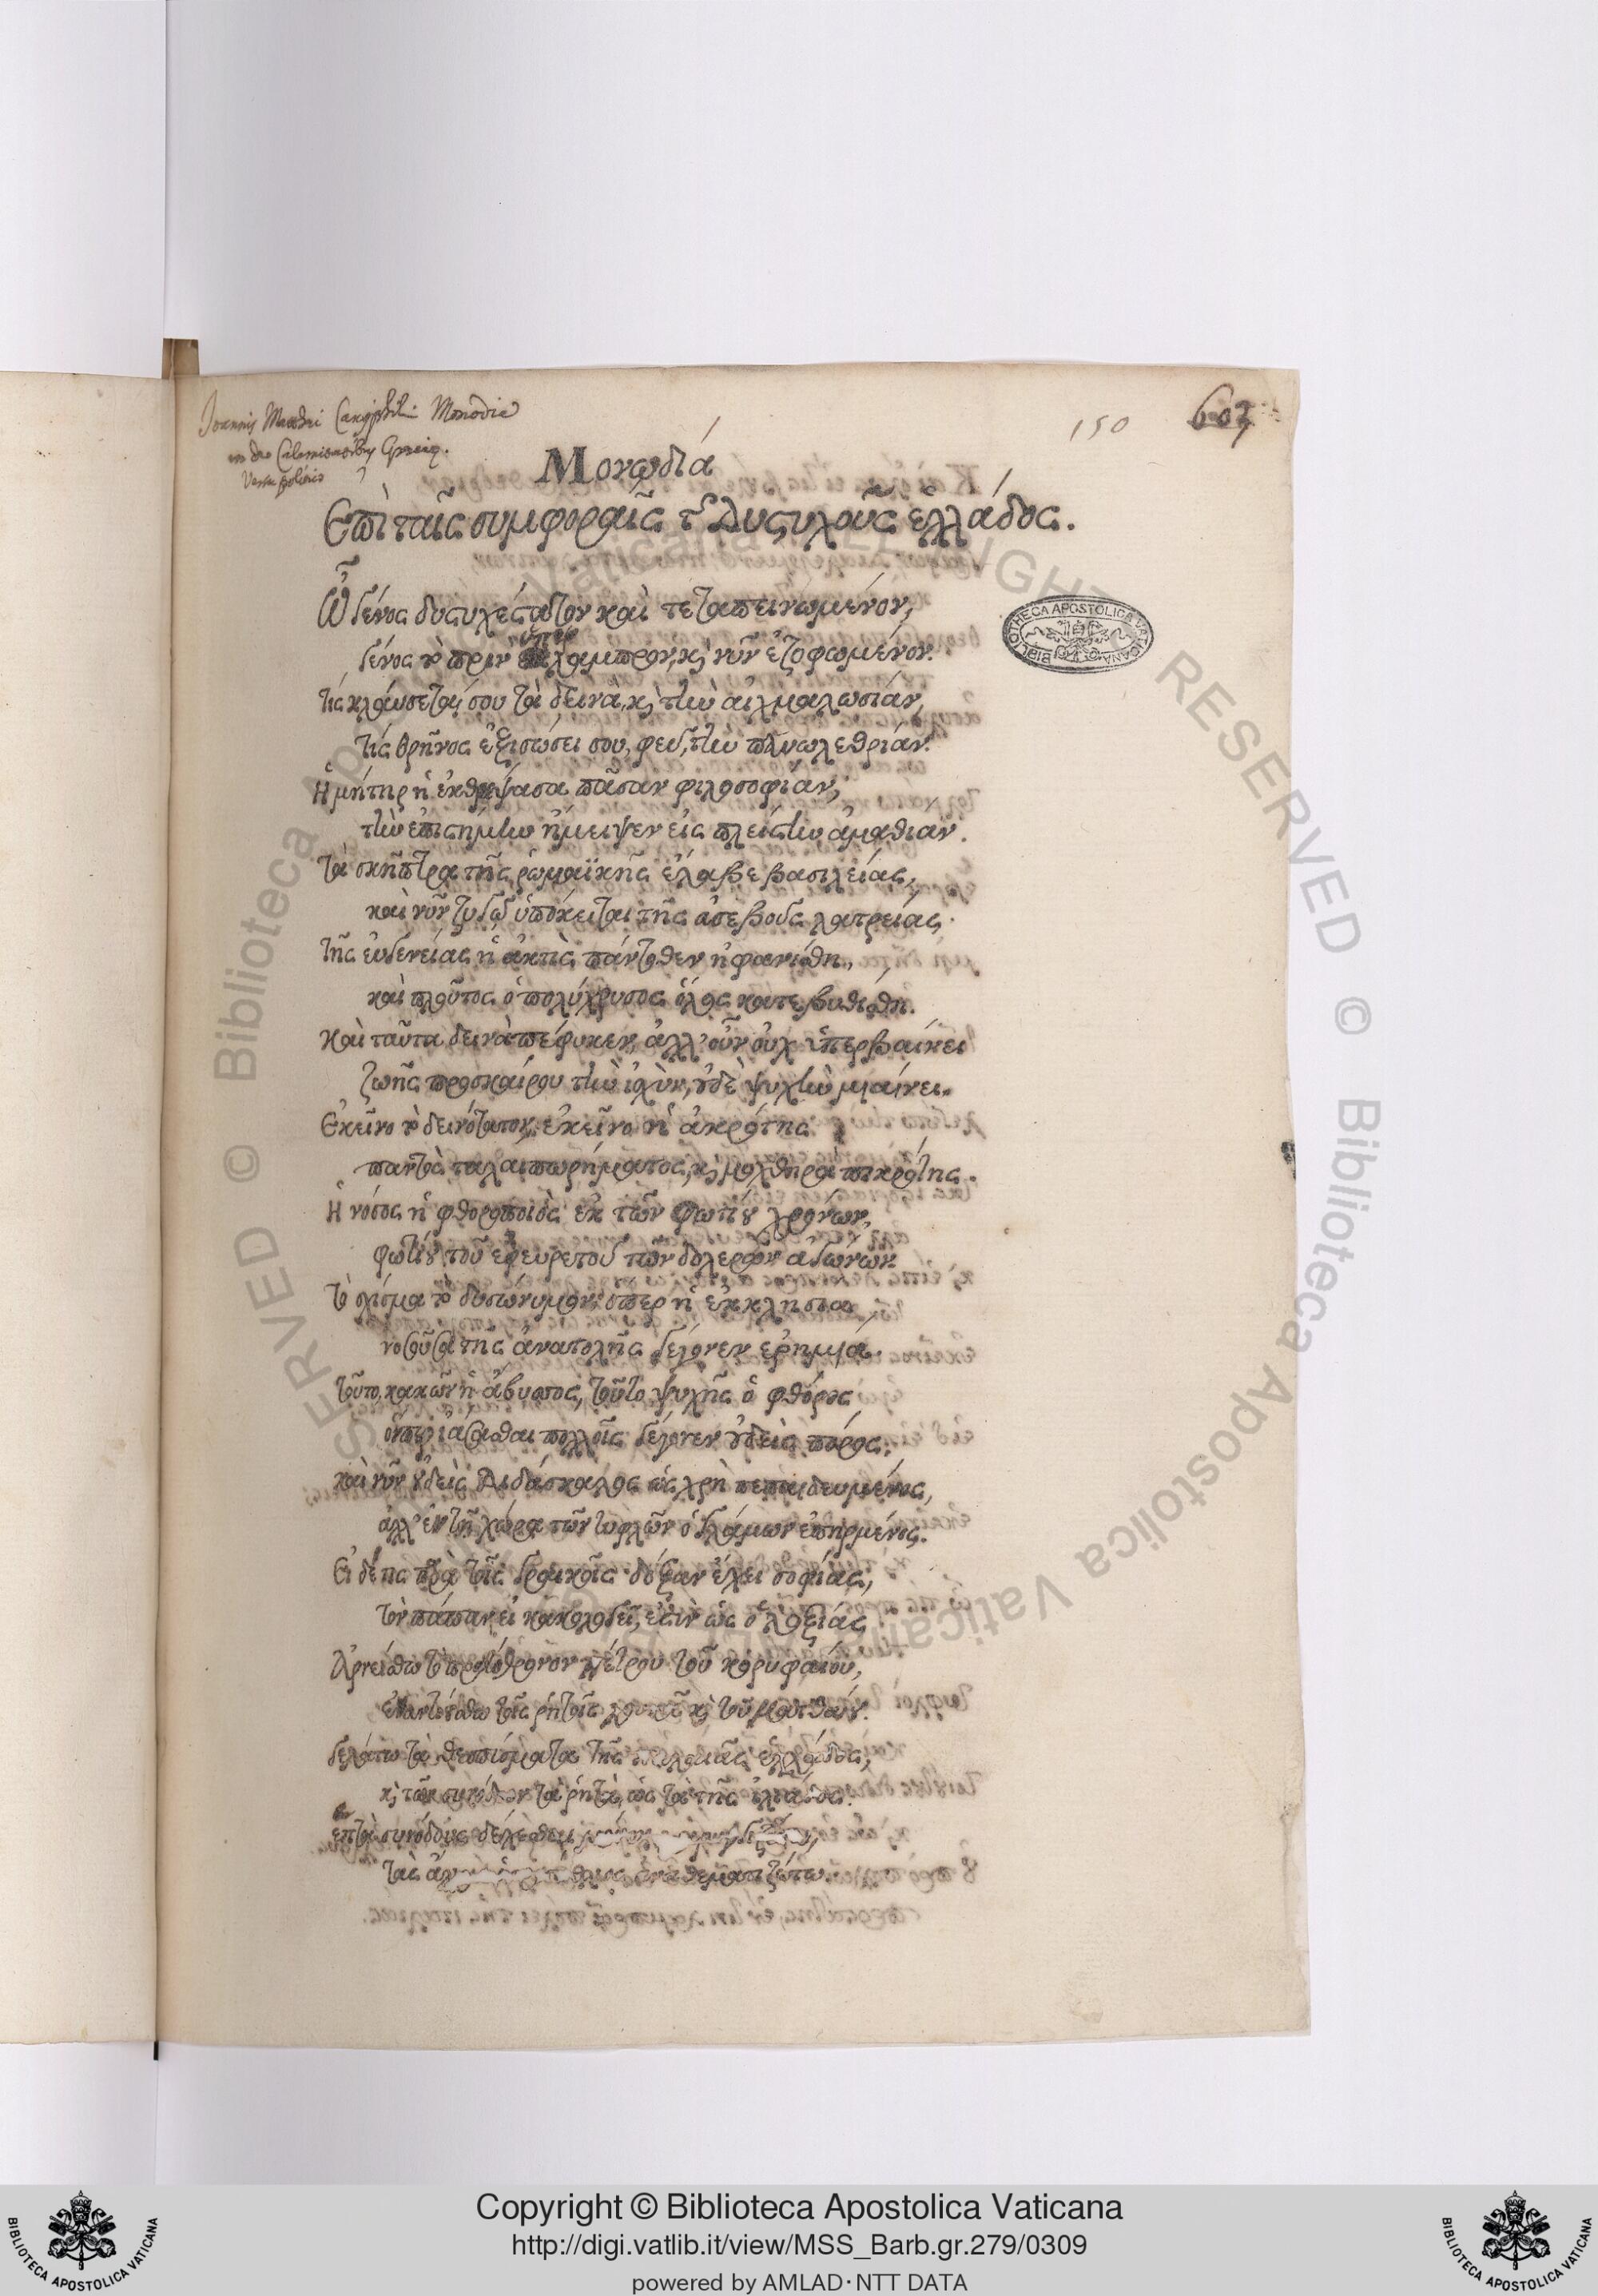 Joannis Matthæi Caryophili Monodia
in Calamitatibus Græciæ.
Versu politico
150
607
Μονῳδία
Ἐπὶ ταῖς συμφοραῖς τῆς Δυςυχοῦς ἑλλάδος.
Ὦ γένος δυςυχέςατον καὶ τεταπεινωμένον,
ὑπὲρ
γένος τὸ πρὶν λαμπρὸν, κὶ νῦν ἐζοφωμένον.
Τίς κλαύσεται σου τὰ δεινὰ, κὶ τὴν αἰχμαλωσίαν,
τίς θρῆνος ἐξισώσει σου, φεῦ, τὴν πανωλεθρίαν.
Ἡ μήτηρ ἡ ἐκθρέψασα πᾶσαν φιλοσοφίαν,
τὴν ἐπιςήμην ἤμειψεν εἰς πλείςην ἀμαθίαν.
Τὰ σκῆπτρα τῆς ῥωμαϊκῆς ἔλαβε βασιλείας,
καὶ νῦν ζυγῷ ὑπόκειται τῆς ἀσεβοῦς λατρείας.
Τῆς εὐγενείας ἡ ἀκτὶς πάντοθεν ἠφανίσθη,
καὶ πλοῦτος ὁ πολύχρυσος ὅλος κατεβυθίσθη.
Καὶ ταῦτα δεινὰ πέφυκεν, ἀλλ' οὖν οὐχ ὑπερβαίνει
ζωῆς προσκαίρου τὴν ἰσχὺν, ȣδὲ ψυχὴν μιαίνει.
Ἐκεῖνο τὸ δεινότατον, ἐκεῖνο ἡ ἀκρότης
παντὸς ταλαιπωρήματος, κὶ μοχθηρὰ πικρότης.
Ἡ νόσος ἡ φθοροποιὸς ἐκ τῶν φωτίȣ χρόνων,
φωτίȣ τοῦ ἐφευρετοῦ τῶν δολερῶν ἀγώνων
Τὸ σχίσμα τὸ δυσώνυμον, ὅπερ ἡ ἐκκλησία
νοσοῦσα της ἀνατολῆς γέγονεν ἐρημία.
Τοῦτο κακῶν ἡ ἄβυσσος, τοῦτο ψυχῆς ὁ φθόρος
ὅνπερ ἰάσασθαι πολλοῖς γέγονεν ȣδεὶς πόρος.
Καὶ νῦν ȣδεὶς Διδάσκαλος ὡς χρὴ πεπαιδευμένος,
ἀλλ' ἐν τῇ χώρᾳ τῶν τυφλῶν ὁ γλάμων ἐπηρμένος.
Εἰ δέ τις παρὰ τοῖς Γραικοῖς δόξαν ἔχει σοφίας,
τὸν πάπαν εἰ κακολογεῖ, ἐςὶν ὡς ὁ λοξίας
Ἀρνείσθω τὸ πρωτόθρονον πέτρου τοῦ κορυφαίου,
ἐναντιȣσθω τοῖς ῥητοῖς λουκᾶ κὶ τοῦ ματθαίȣ.
γελάτω τὰ θεσπίσματα τῆς παλαιᾶς ἑλλάδος,
κὶ τῶν συνόδων τὰ ῥητὰ, ὡς τὰ τῆς ἰλιάδος.
ἑπτὰ συνόδους δέχεσθαι
τὰς ἀναθεματιζέτω.
Copyright © Biblioteca Apostolica Vaticana
http://digi.vatlib.it/view/MSS_Barb.gr.279/0309
powered by AMLAD·NTT DATA